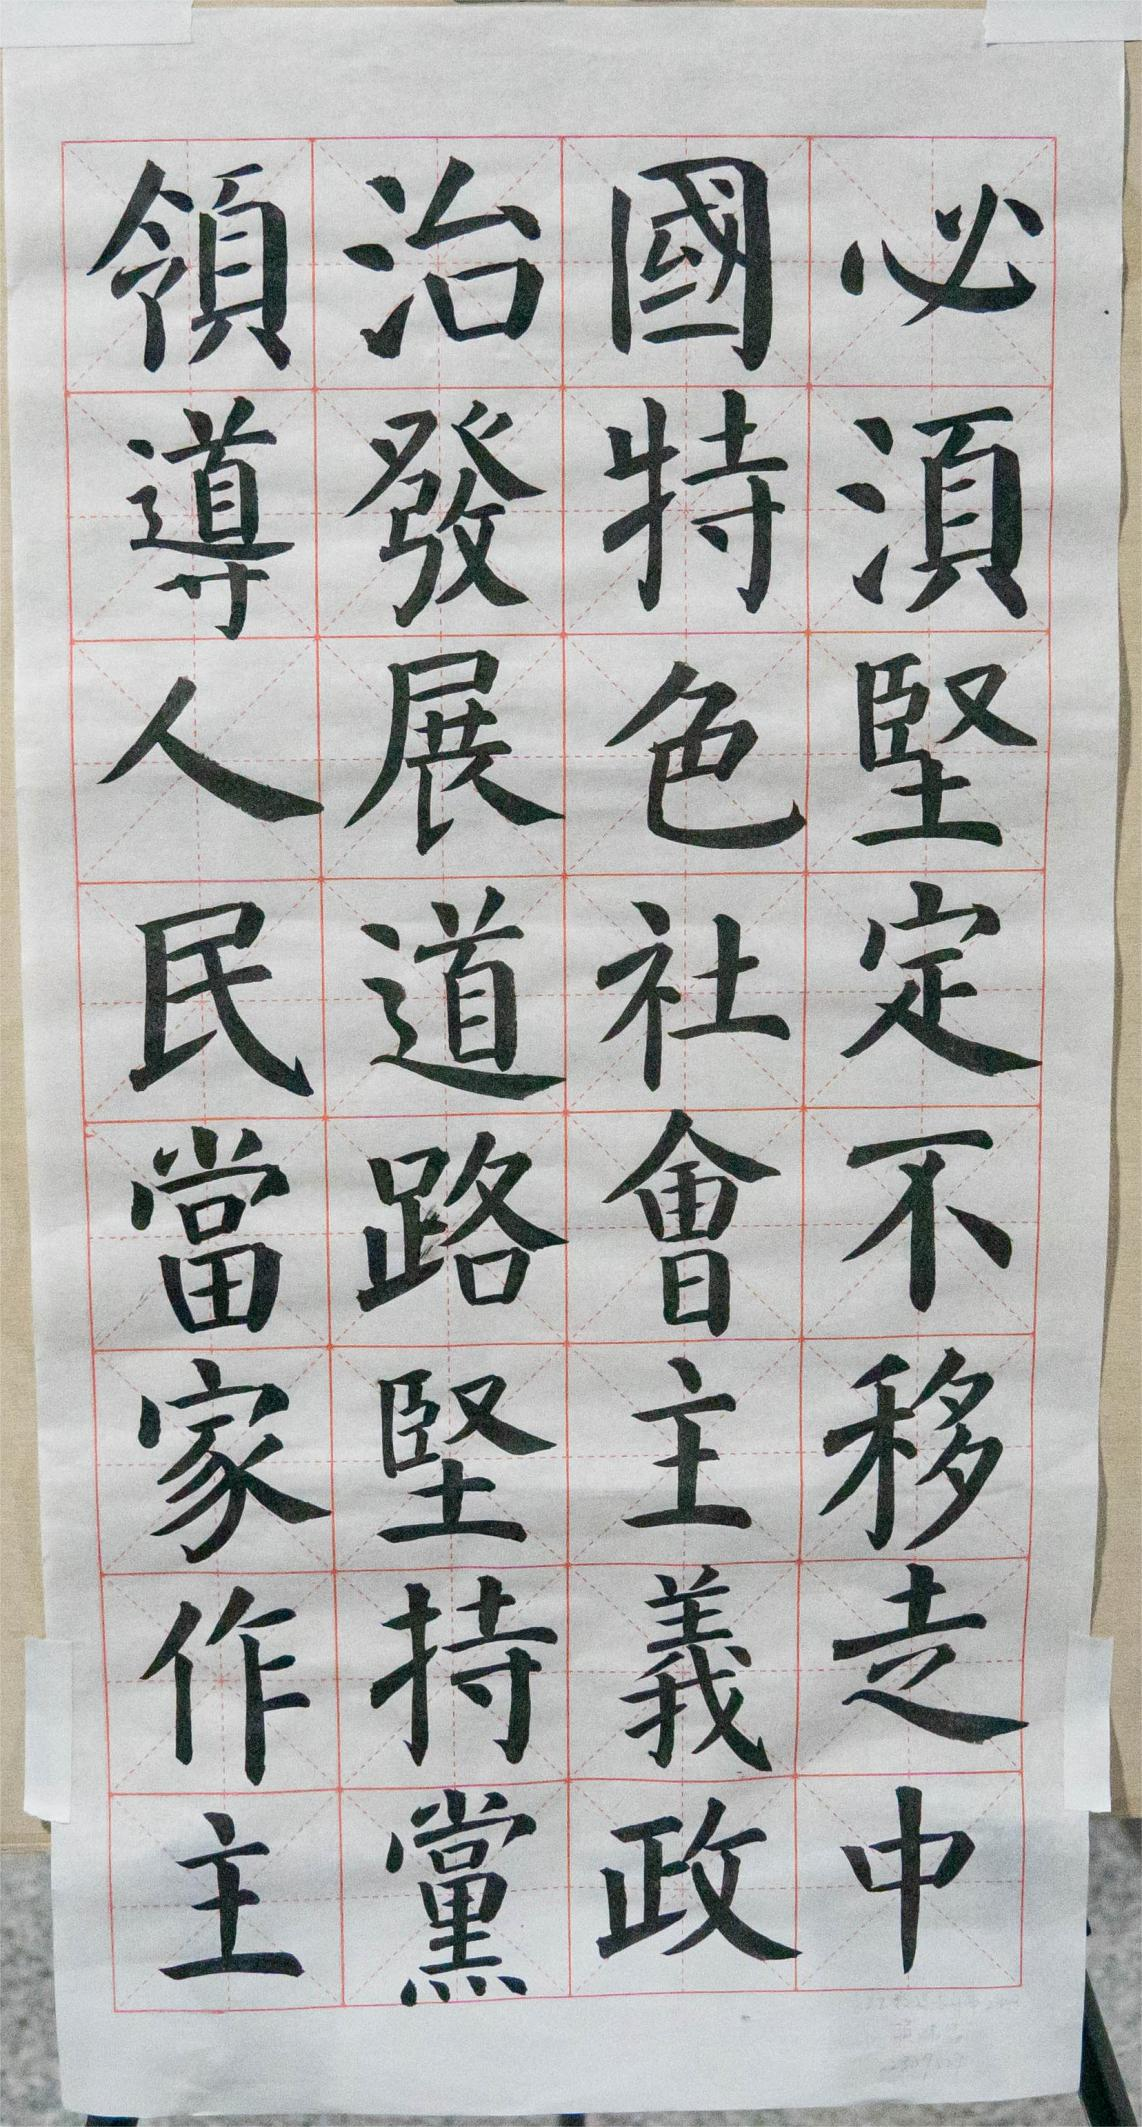 必湏堅定不移走中
國特色社會主義政
治發展道路堅持黨
領導人民當家作主